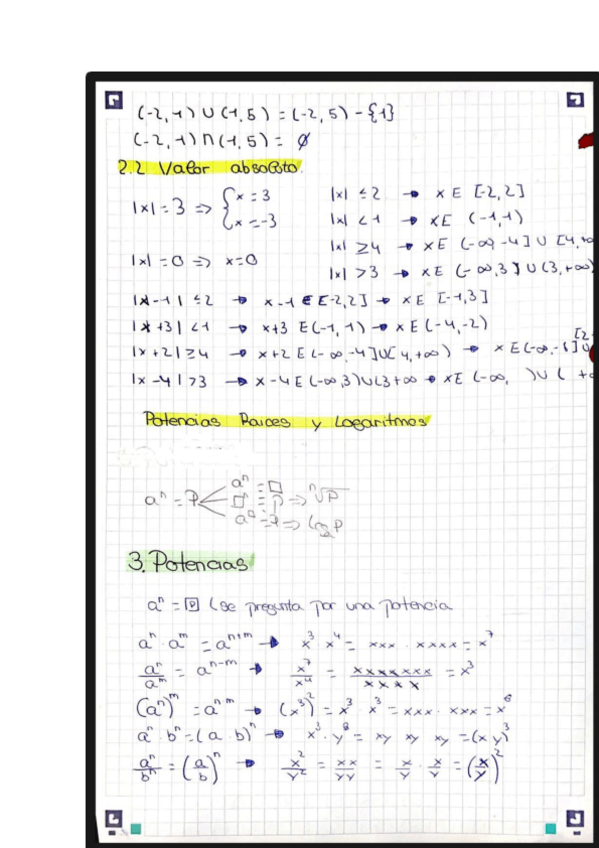 (-2, 1) ∪ (1, 5) = (-2, 5) - {1}
(-2, 1) ∩ (1, 5) = ∅
2.2 Valor absoluto
|x| = 3 => { x = 3
x = -3
|x| = 0 => x = 0
|x| ≤ 2 → x E [-2, 2]
|x| < 1 → x E (-1, 1)
|x| ≥ 4 → x E (-∞, -4] ∪ [4, +∞
|x| > 3 → x E (-∞, 3] ∪ (3, +∞)
|x - 1| ≤ 2 → x - 1 E [-2, 2] → x E [-1, 3]
|x + 3| < 1 → x + 3 E (-1, 1) → x E (-4, -2)
|x + 2| ≥ 4 → x + 2 E (-∞, -4] ∪ [4, +∞) → x E (-∞, -6] ∪ [2
|x - 4| > 3 → x - 4 E (-∞, 3) ∪ (3 +∞ → x E (-∞, ) ∪ ( +∞
Potencias Raices y Logaritmos
aⁿ = P < aⁿ = □
□ⁿ = P => ⁿ√P
a□ = P => logₐ P
3. Potencias
aⁿ = P (se pregunta por una potencia
aⁿ · aᵐ = aⁿ⁺ᵐ → x³ · x⁴ = xxx · xxxx = x⁷
aⁿ/aᵐ = aⁿ⁻ᵐ → x⁷/x⁴ = xxxxxxx/xxxx = x³
(aⁿ)ᵐ = aⁿ·ᵐ → (x³)² = x³ · x³ = xxx · xxx = x⁶
aⁿ · bⁿ = (a · b)ⁿ → x³ · y³ = xy xy xy = (x y)³
aⁿ/bⁿ = (a/b)ⁿ → x²/y² = xx/yy = x/y · x/y = (x/y)²